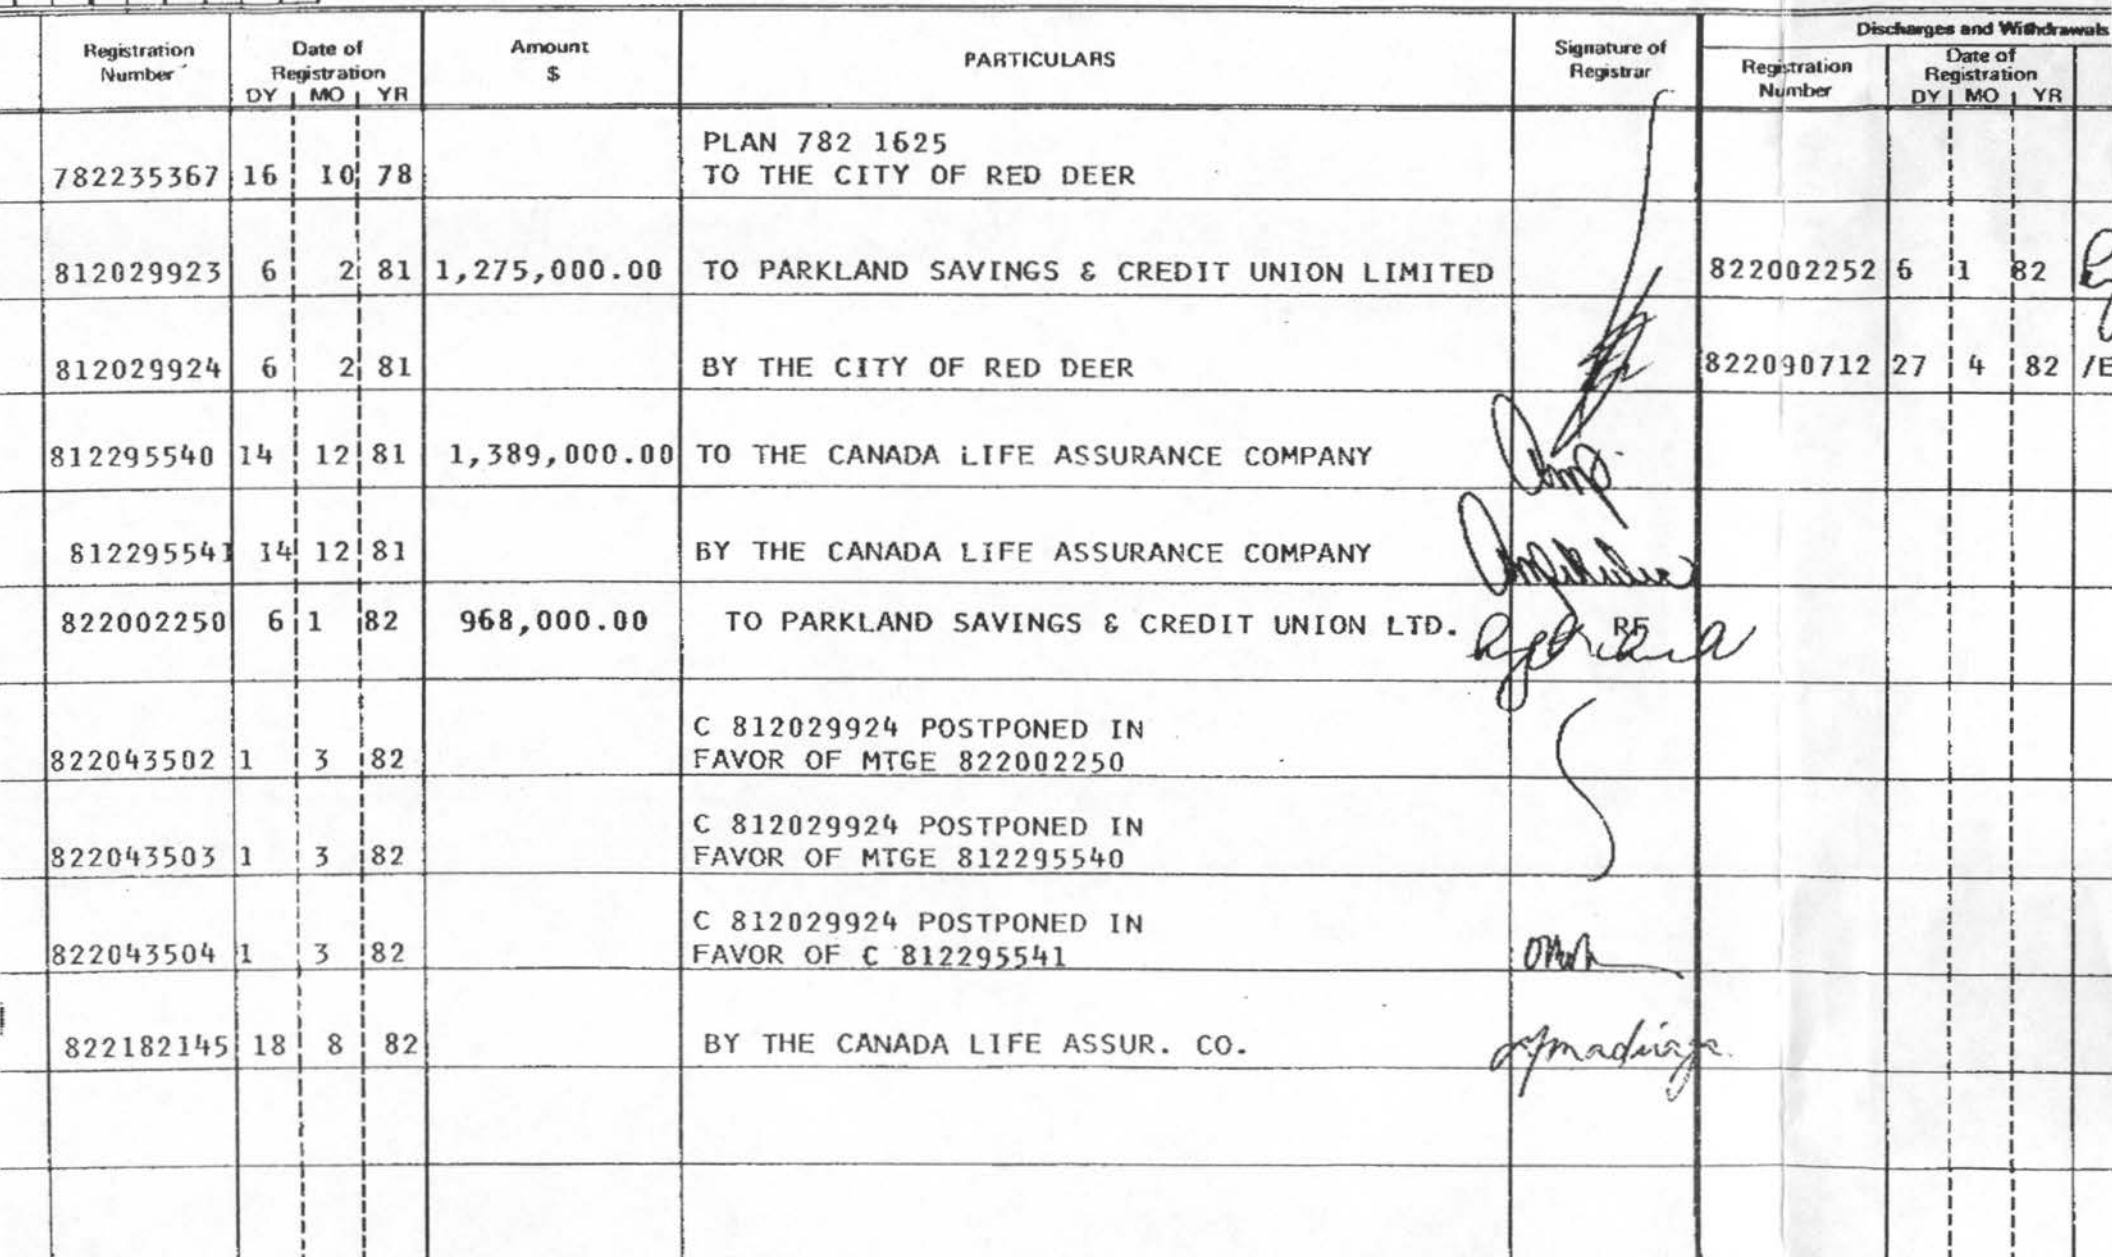 Discharges and Withdrawals
Registration Number Date of Registration Amount $ PARTICULARS Signature of Registrar Registration Number Date of Registration
DY MO YR DY MO YR
PLAN 782 1625
782235367 16 10 78 TO THE CITY OF RED DEER
812029923 6 2 81 1,275,000.00 TO PARKLAND SAVINGS & CREDIT UNION LIMITED 822002252 6 1 82
812029924 6 2 81 BY THE CITY OF RED DEER 822090712 27 4 82 /E
812295540 14 12 81 1,389,000.00 TO THE CANADA LIFE ASSURANCE COMPANY
812295541 14 12 81 BY THE CANADA LIFE ASSURANCE COMPANY
822002250 6 1 82 968,000.00 TO PARKLAND SAVINGS & CREDIT UNION LTD. RF
C 812029924 POSTPONED IN
822043502 1 3 82 FAVOR OF MTGE 822002250
C 812029924 POSTPONED IN
822043503 1 3 82 FAVOR OF MTGE 812295540
C 812029924 POSTPONED IN
822043504 1 3 82 FAVOR OF C 812295541
822182145 18 8 82 BY THE CANADA LIFE ASSUR. CO.